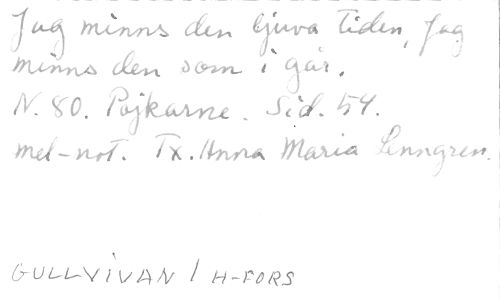 Jag minns den ljuva tiden, Jag
minns den som i går.
N. 80. Pojkarne. Sid. 54.
mel-not. Tx. Anna Maria Lenngren.
GULLVIVAN / H-FORS